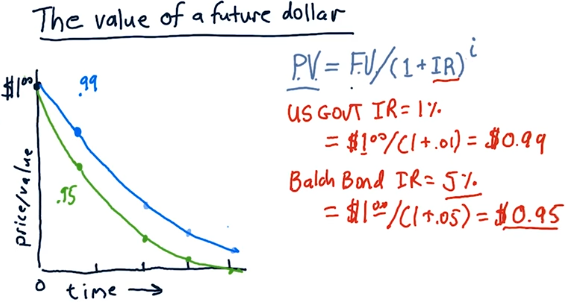 The value of a future dollar
$1.00
.99
.95
price/value
0 time →
P.V. = F.V/(1+IR)^i
US GOVT IR=1%
= $1.00/(1+.01) = $0.99
Balch Bond IR=5%
= $1.00/(1+.05) = $0.95